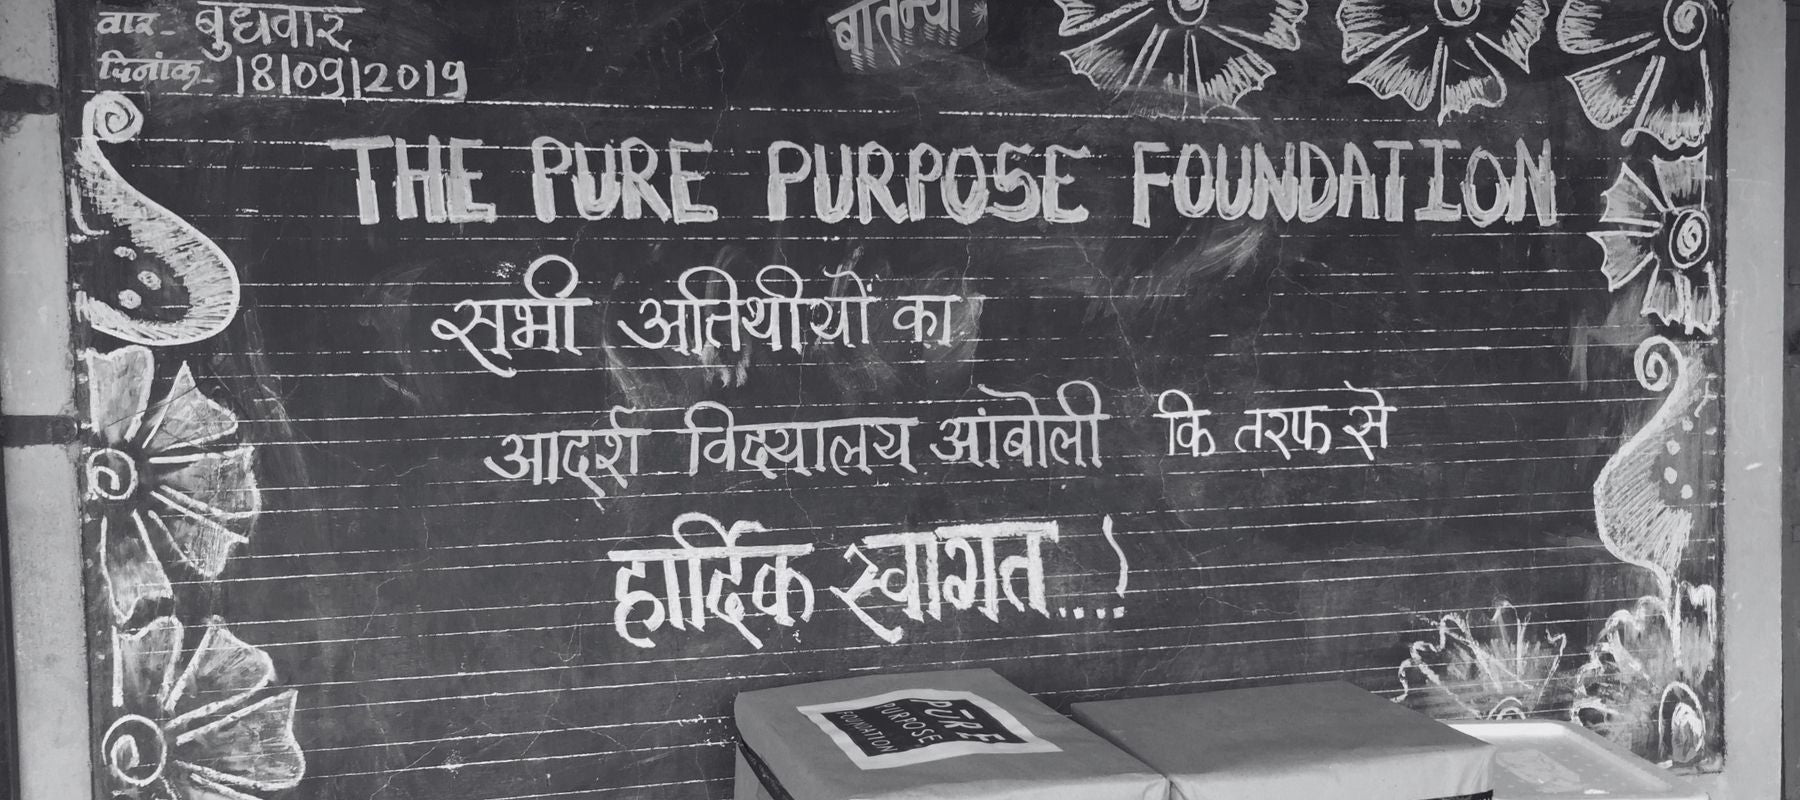 वार - बुधवार
बातम्या
दिनांक - 18/09/2019
THE PURE PURPOSE FOUNDATION
सभी अतिथीयों का
आदर्श विदयालय आंबोली कि तरफ से
हार्दिक स्वागत....!
PURE
PURPOSE
FOUNDATION